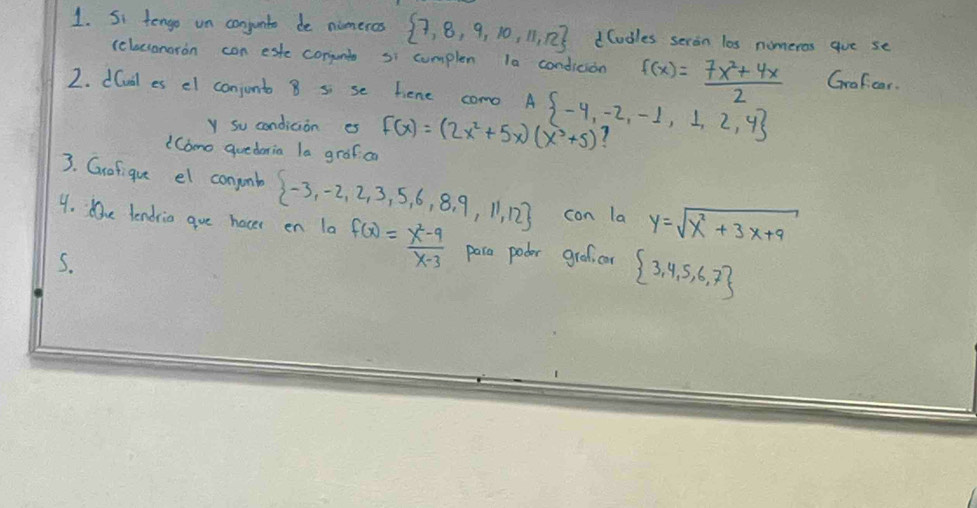 1. Si tengo un conjunto de números {7, 8, 9, 10, 11, 12} ¿Cuáles serán los números que se
relacionarán con este conjunto si cumplen la condición f(x) = (7x² + 4x)/2 Graficar.
2. ¿Cuál es el conjunto B si se tiene como A {-4, -2, -1, 1, 2, 4}
y su condición es f(x) = (2x² + 5x)(x³ + 5)?
¿Cómo quedaria la gráfica
3. Grafique el conjunto {-3, -2, 2, 3, 5, 6, 8, 9, 11, 12} con la y = √(x² + 3x + 9)
4. ¿Que tendria que hacer en la f(x) = (x² - 9)/(x - 3) para poder graficar {3, 4, 5, 6, 7}
5.